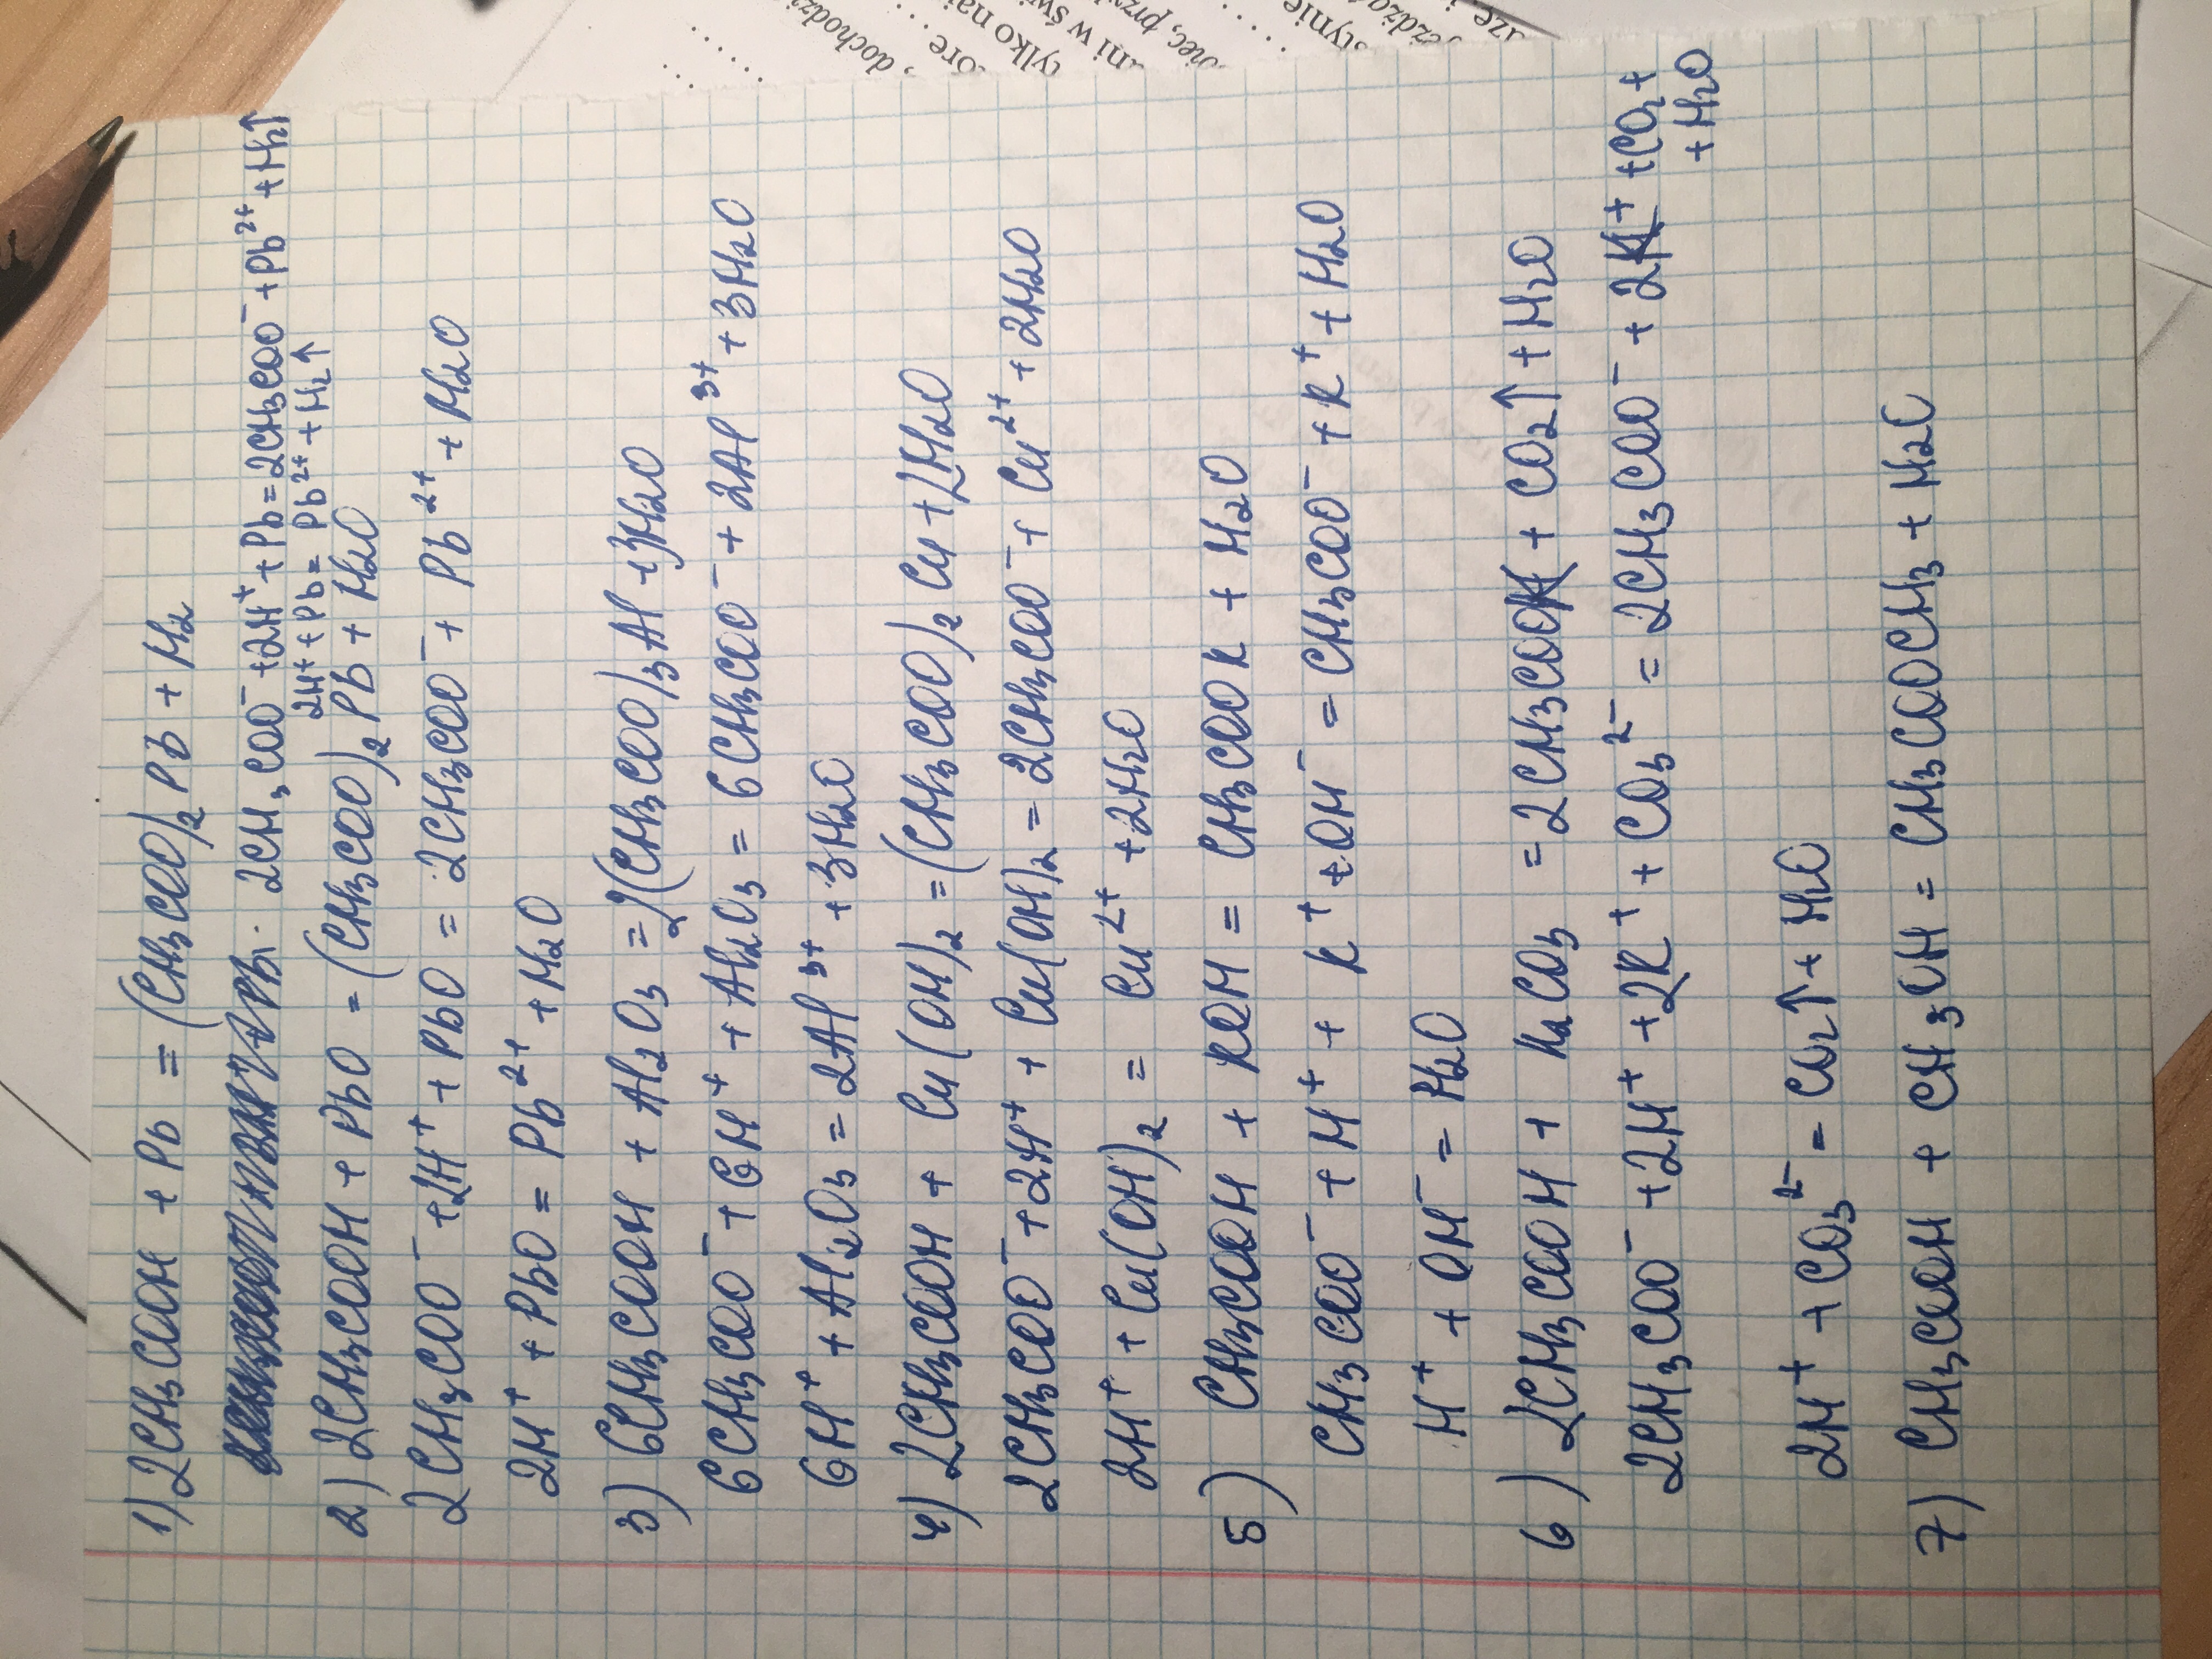 1) 2CH₃COOH + Pb = (CH₃COO)₂Pb + H₂
2CH₃COO⁻ + 2H⁺ + Pb = 2CH₃COO⁻ + Pb²⁺ + H₂↑
2H⁺ + Pb = Pb²⁺ + H₂↑
2) 2CH₃COOH + PbO = (CH₃COO)₂Pb + H₂O
2CH₃COO⁻ + 2H⁺ + PbO = 2CH₃COO⁻ + Pb²⁺ + H₂O
2H⁺ + PbO = Pb²⁺ + H₂O
3) 6CH₃COOH + Al₂O₃ = 2(CH₃COO)₃Al + 3H₂O
6CH₃COO⁻ + 6H⁺ + Al₂O₃ = 6CH₃COO⁻ + 2Al³⁺ + 3H₂O
6H⁺ + Al₂O₃ = 2Al³⁺ + 3H₂O
4) 2CH₃COOH + Cu(OH)₂ = (CH₃COO)₂Cu + 2H₂O
2CH₃COO⁻ + 2H⁺ + Cu(OH)₂ = 2CH₃COO⁻ + Cu²⁺ + 2H₂O
2H⁺ + Cu(OH)₂ = Cu²⁺ + 2H₂O
5) CH₃COOH + KOH = CH₃COOK + H₂O
CH₃COO⁻ + H⁺ + K⁺ + OH⁻ = CH₃COO⁻ + K⁺ + H₂O
H⁺ + OH⁻ = H₂O
6) 2CH₃COOH + K₂CO₃ = 2CH₃COOK + CO₂↑ + H₂O
2CH₃COO⁻ + 2H⁺ + 2K⁺ + CO₃²⁻ = 2CH₃COO⁻ + 2K⁺ + CO₂↑
+ H₂O
2H⁺ + CO₃²⁻ = CO₂↑ + H₂O
7) CH₃COOH + CH₃OH = CH₃COOCH₃ + H₂O
dochodz
ore
tylko naj
ni w świ